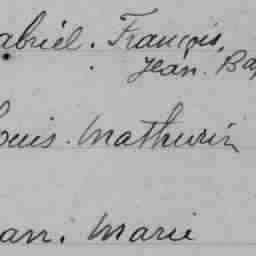 abriel. François,
Jean. Ba
ouis. Mathurin
an. Marie